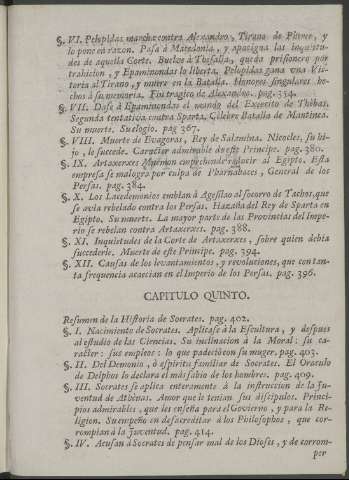 §. VI. Pelopidas marcha contra Alexandro, Tirano de Pheres, y
lo pone en razon. Pasa à Macedonia, y apacigua las inquietu-
des de aquella Corte. Buelve à Thesalia, queda prisionero por
trahicion, y Epaminondas lo liberta. Pelopidas gana una Vic-
toria al Tirano, y muere en la Batalla. Honores singulares he-
chos à su memoria. Fin tragico de Alexandro. pag. 354.
§. VII. Dase à Epaminondas el mando del Exercito de Thebas.
Segunda tentativa contra Sparta. Celebre Batalla de Mantinea.
Su muerte. Su elogio. pag 367.
§. VIII. Muerte de Evagoras, Rey de Salamina. Nicocles, su hi-
jo, le succede. Caracter admirable de este Principe. pag. 380.
§. IX. Artaxerxes Mnemon emprehende reducir al Egipto. Esta
empresa se malogra por culpa de Pharnabaces, General de los
Persas. pag. 384.
§. X. Los Lacedemonios embian à Agesilao al socorro de Tachos, que
se avia rebelado contra los Persas. Hazaña del Rey de Sparta en
Egipto. Su muerte. La mayor parte de las Provincias del Impe-
rio se rebelan contra Artaxerxes. pag. 388.
§. XI. Inquietudes de la Corte de Artaxerxes, sobre quien debia
succederle. Muerte de este Principe. pag. 394.
§. XII. Causas de los levantamientos, y revoluciones, que con tan-
ta frequencia acaecian en el Imperio de los Persas. pag. 396.
CAPITULO QUINTO.
Resumen de la Historia de Socrates. pag. 402.
§. I. Nacimiento de Socrates. Aplicase à la Escultura, y despues
al estudio de las Ciencias. Su inclinacion à la Moral: su ca-
racter: sus empleos: lo que padeciò con su muger. pag. 403.
§. II. Del Demonio, ò espiritu familiar de Socrates. El Oraculo
de Delphos lo declara el mas sabio de los hombres. pag. 409.
§. III. Socrates se aplica enteramente à la instruccion de la Ju-
ventud de Athenas. Amor que le tenian sus discipulos. Princi-
pios admirables, que les enseña para el Govierno, y para la Re-
ligion. Su empeño en desacreditar à los Philosophos, que cor-
rompian à la Juventud. pag. 414.
§. IV. Acusan à Socrates de pensar mal de los Dioses, y de corrom-
per